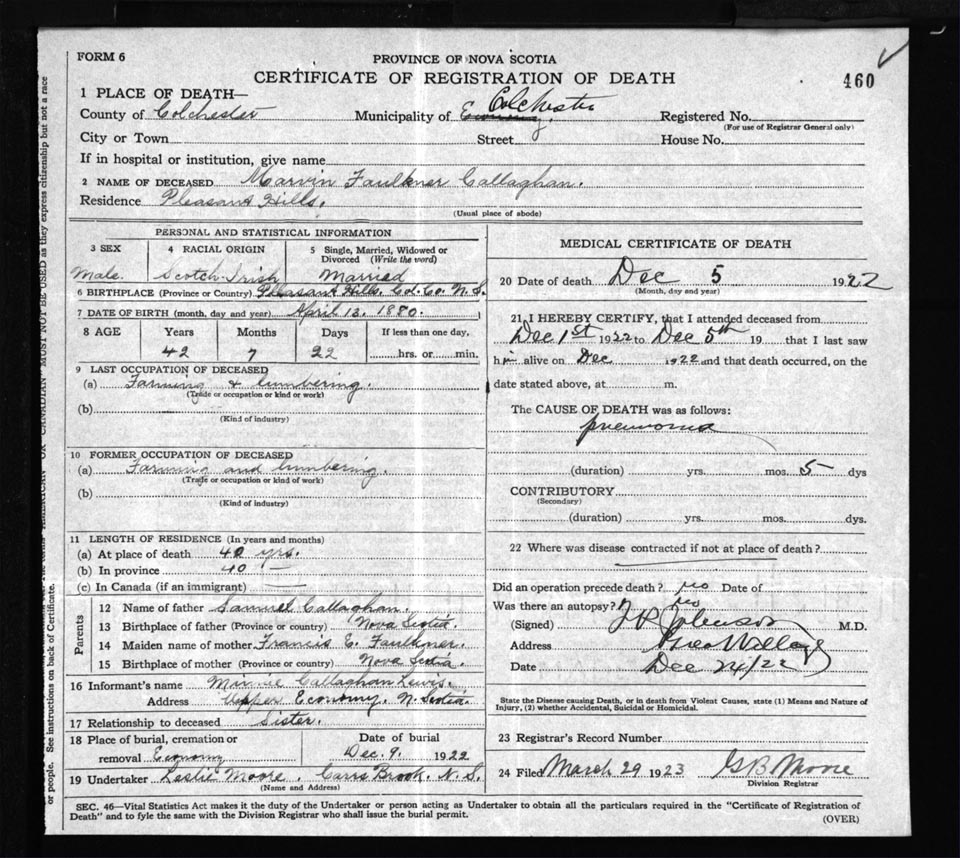 FORM 6
PROVINCE OF NOVA SCOTIA
CERTIFICATE OF REGISTRATION OF DEATH
460
1 PLACE OF DEATH—
County of Colchester Municipality of Economy. Colchester Registered No.
(For use of Registrar General only)
City or Town Street House No.
If in hospital or institution, give name
2 NAME OF DECEASED Marvin Faulkner Callaghan.
Residence Pleasant Hills.
(Usual place of abode)
PERSONAL AND STATISTICAL INFORMATION
3 SEX 4 RACIAL ORIGIN 5 Single, Married, Widowed or
Divorced (Write the word)
Male. Scotch-Irish Married
6 BIRTHPLACE (Province or Country) Pleasant Hills. Col. Co. N.S.
7 DATE OF BIRTH (month, day and year) April 13. 1880.
8 AGE Years Months Days If less than one day,
42 7 22 hrs. or min.
9 LAST OCCUPATION OF DECEASED
(a) Farming & lumbering.
(Trade or occupation or kind or work)
(b)
(Kind of industry)
10 FORMER OCCUPATION OF DECEASED
(a) Farming and lumbering.
(Trade or occupation or kind of work)
(b)
(Kind of industry)
11 LENGTH OF RESIDENCE (In years and months)
(a) At place of death 40 yrs.
(b) In province 40 —
(c) In Canada (if an immigrant) —
Parents
12 Name of father Samuel Callaghan.
13 Birthplace of father (Province or country) Nova Scotia.
14 Maiden name of mother Francis E. Faulkner.
15 Birthplace of mother (Province or country) Nova Scotia.
16 Informant's name Minnie Callaghan Lewis.
Address Upper Economy. N. Scotia.
17 Relationship to deceased Sister.
18 Place of burial, cremation or Date of burial
removal Economy Dec. 9. 1922
19 Undertaker Leslie Moore. Carrs Brook. N.S.
(Name and Address)
MEDICAL CERTIFICATE OF DEATH
20 Date of death Dec 5 1922
(Month, day and year)
21 I HEREBY CERTIFY, that I attended deceased from
Dec 1st 1922 to Dec 5th 19 that I last saw
him alive on Dec 1922 and that death occurred, on the
date stated above, at m.
The CAUSE OF DEATH was as follows:
pneumonia
(duration) yrs. mos. 5 dys
CONTRIBUTORY
(Secondary)
(duration) yrs. mos. dys.
22 Where was disease contracted if not at place of death?
Did an operation precede death? no Date of
Was there an autopsy? no
(Signed) M.D.
Address Village
Date Dec 24/22
State the Disease causing Death, or in death from Violent Causes, state (1) Means and Nature of
Injury, (2) whether Accidental, Suicidal or Homicidal.
23 Registrar's Record Number
24 Filed March 29 1923 G B Moore
Division Registrar
SEC. 46—Vital Statistics Act makes it the duty of the Undertaker or person acting as Undertaker to obtain all the particulars required in the "Certificate of Registration of
Death" and to fyle the same with the Division Registrar who shall issue the burial permit.
(OVER)
AMERICAN OR CANADIAN MUST NOT BE USED as they express citizenship but not a race
or people. See instructions on back of Certificate.